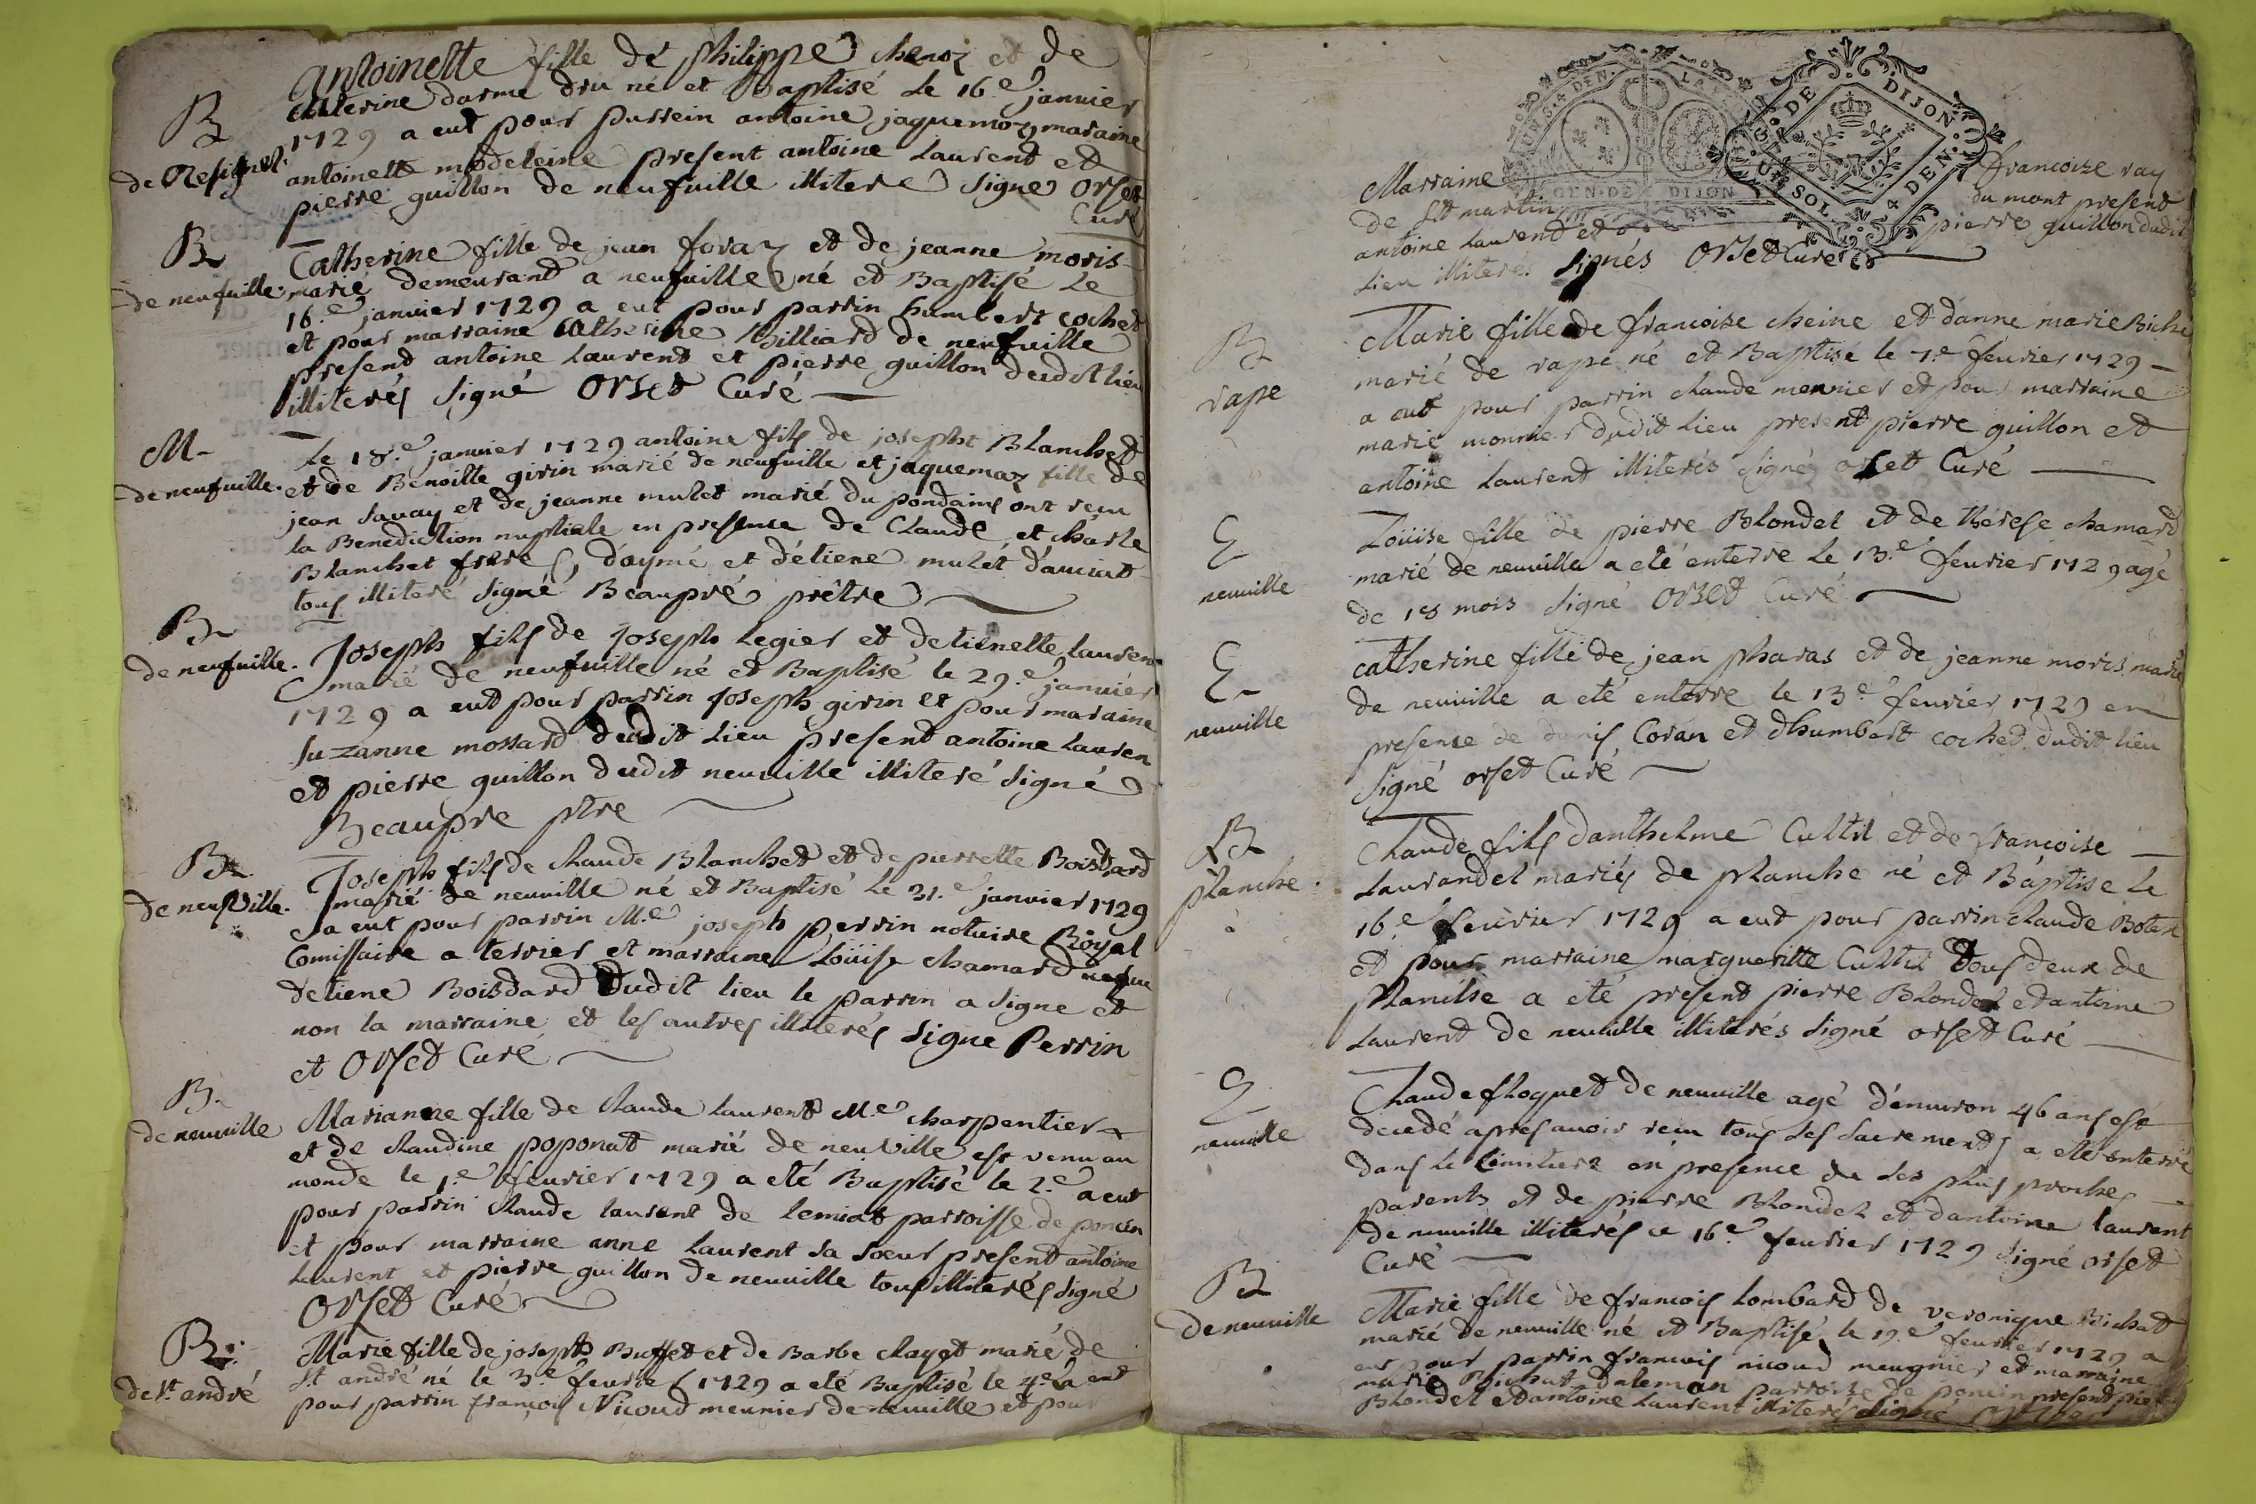 B
de Resignel.
antoinette fille de philippe chenoz et de
catherine darme dru né et Baptisé le 16e janvier
1729 a eut pour parrein antoine jaquemoz maraine
antoinette madeleine present antoine Laurent et
pierre guillon de neufuille illitere signe orset
Curé
B
de neufuille.
Catherine fille de jean foraz et de jeanne moris
marié demeurant a neufuille né et Baptisé Le
16.e janvier 1729 a eut pour parrin humbert cochet
et pour marraine Catherine billiard de neufuille
present antoine Laurent et pierre guillon dudit lieu
illiterés signé orset Curé
M
de neufuille.
Le 18.e janvier 1729 antoine fils de josepht Blanchet
et de Benoitte girin marié de neufuille et jaquemaz fille de
jean sauay et de jeanne mulet marié du pondains ont recu
la Benediction nuptiale en presence de Claude et charle
Blanchet freres, d'aymé et d'étiene mulet
tous illiteré signé Beaupré prêtre
B
de neufuille.
Joseph fils de Joseph Legier et detienette Lauren
marié de neufuille né et Baptisé le 29.e janvier
1729 a eut pour parrin Joseph girin et pour maraine
suzanne mossard dudit Lieu present antoine Lauren
et pierre guillon dudit neuuille illiteré signé
Beaupre ptre
B
de neufville.
Joseph fils de claude Blanchet et de pierrette Boisdard
marié de neuuille né et Baptisé Le 31.e janvier 1729
a eut pour parrin M.e joseph perrin notaire Royal
Comissaire a terrier et marraine Loüise chamard
detiene Boisdard dudit lieu le parrin a signe et
non la marraine et les autres illiterés signe Perrin
et orset Curé
B.
de neuuille
Marianne fille de claude Laurent M.e charpentier
et de claudine poponat marié de neuville est venu au
monde le 1.e feurier 1729 a eté Baptisé le 2.e a eut
pour parrin claude laurent de Lemiat parroisse de poncin
et pour marraine anne Laurent sa soeur present antoine
Laurent et pierre guillon de neuuille tous illiterés signé
orset Curé
B
de st. andré
Marie fille de joseph Buffet et de Barbe clayet marié de
st andré né le 3.e feurier 1729 a eté Baptisé le 4e a eut
pour parrin françois Nicoud meunier de neuuille et pour
GEN. DE DIJON
G. DE DIJON
UN SOL 4 DEN.
Marraine francoize ray
de st martin du mont present
antoine Laurent et pierre guillon dudit
Lieu illiterés signés orset Curé
B
rape
Marie fille de francoise cheine et danne marie Biche
marié de rape né et Baptisé le 7.e feurier 1729
a eut pour parrin claude meunier et pour marraine
marie monnier dudit Lieu present pierre guillon et
antoine Laurent illiterés signé orset Curé
E
neuuille
Loüise fille de pierre Blondel et de thérese chamard
marié de neuuille a eté enterre Le 13.e feurier 1729 agé
de 18 mois signé orset Curé
E
neuuille
Catherine fille de jean pharas et de jeanne moris marié
de neuuille a eté enterre le 13.e feurier 1729 en
presence de denis Coran et dhumbert cochet dudit lieu
signé orset Curé
B
planche.
Claude fils danthelme Cultil et de francoise
Laurandel mariés de planche né et Baptise Le
16.e feurier 1729 a eut pour parrin claude Botex
et pour marraine margueritte Cultil tous deux de
planche a eté present pierre Blondel et antoine
Laurent de neuuille illiterés signé orset Curé
E
neuuille
Claude floquet de neuuille agé d'enuiron 46 ans est
decedé apres auoir recu tous ses sacrements a eté enterré
dans le cimitiere en presence de ses plus proches
parents et de pierre Blondel et dantoine laurent
de neuuille illiteres ce 16.e feurier 1729 signé orset
Curé
B
de neuuille
Marie fille de francois Lombard de veronique Bichat
marié de neuuille né et Baptisé le 19.e feurier 1729 a
eut pour parrin francois nicoud meugnier et marraine
marie Bichat daleman parroisse de poncin present pierre
Blondel et antoine Laurent illiterés signé